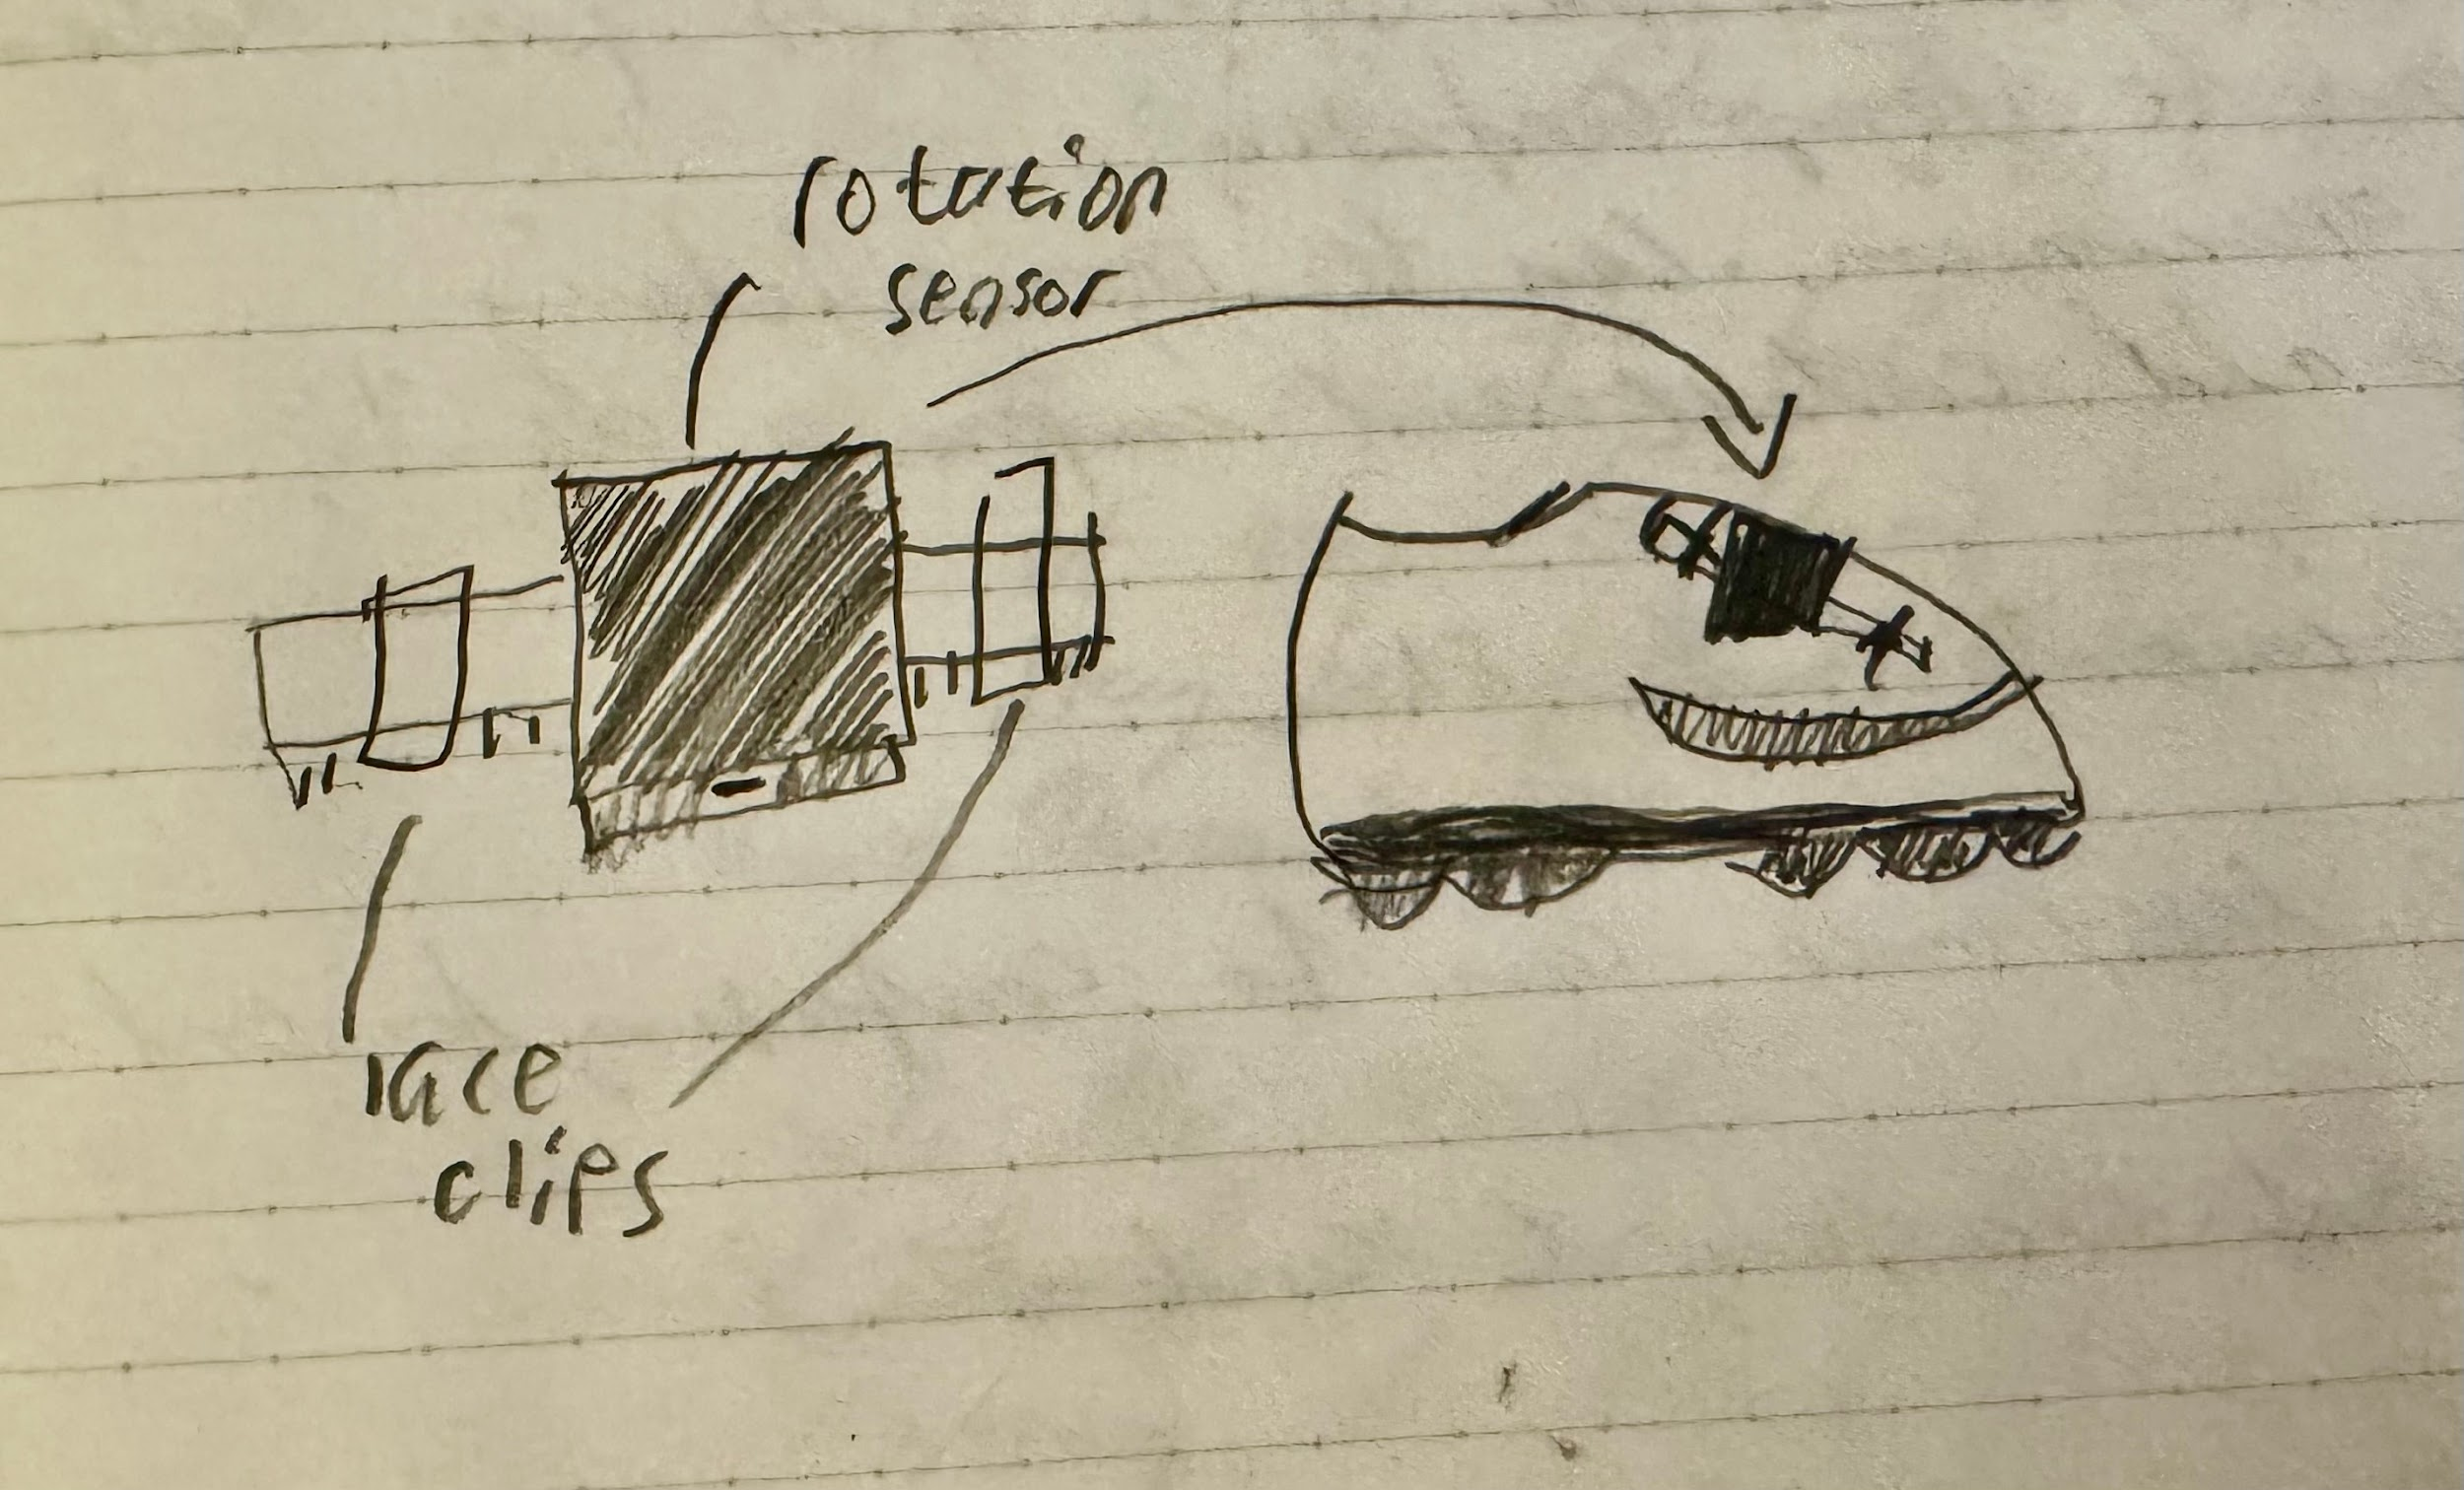 rotation
sensor
lace
clips